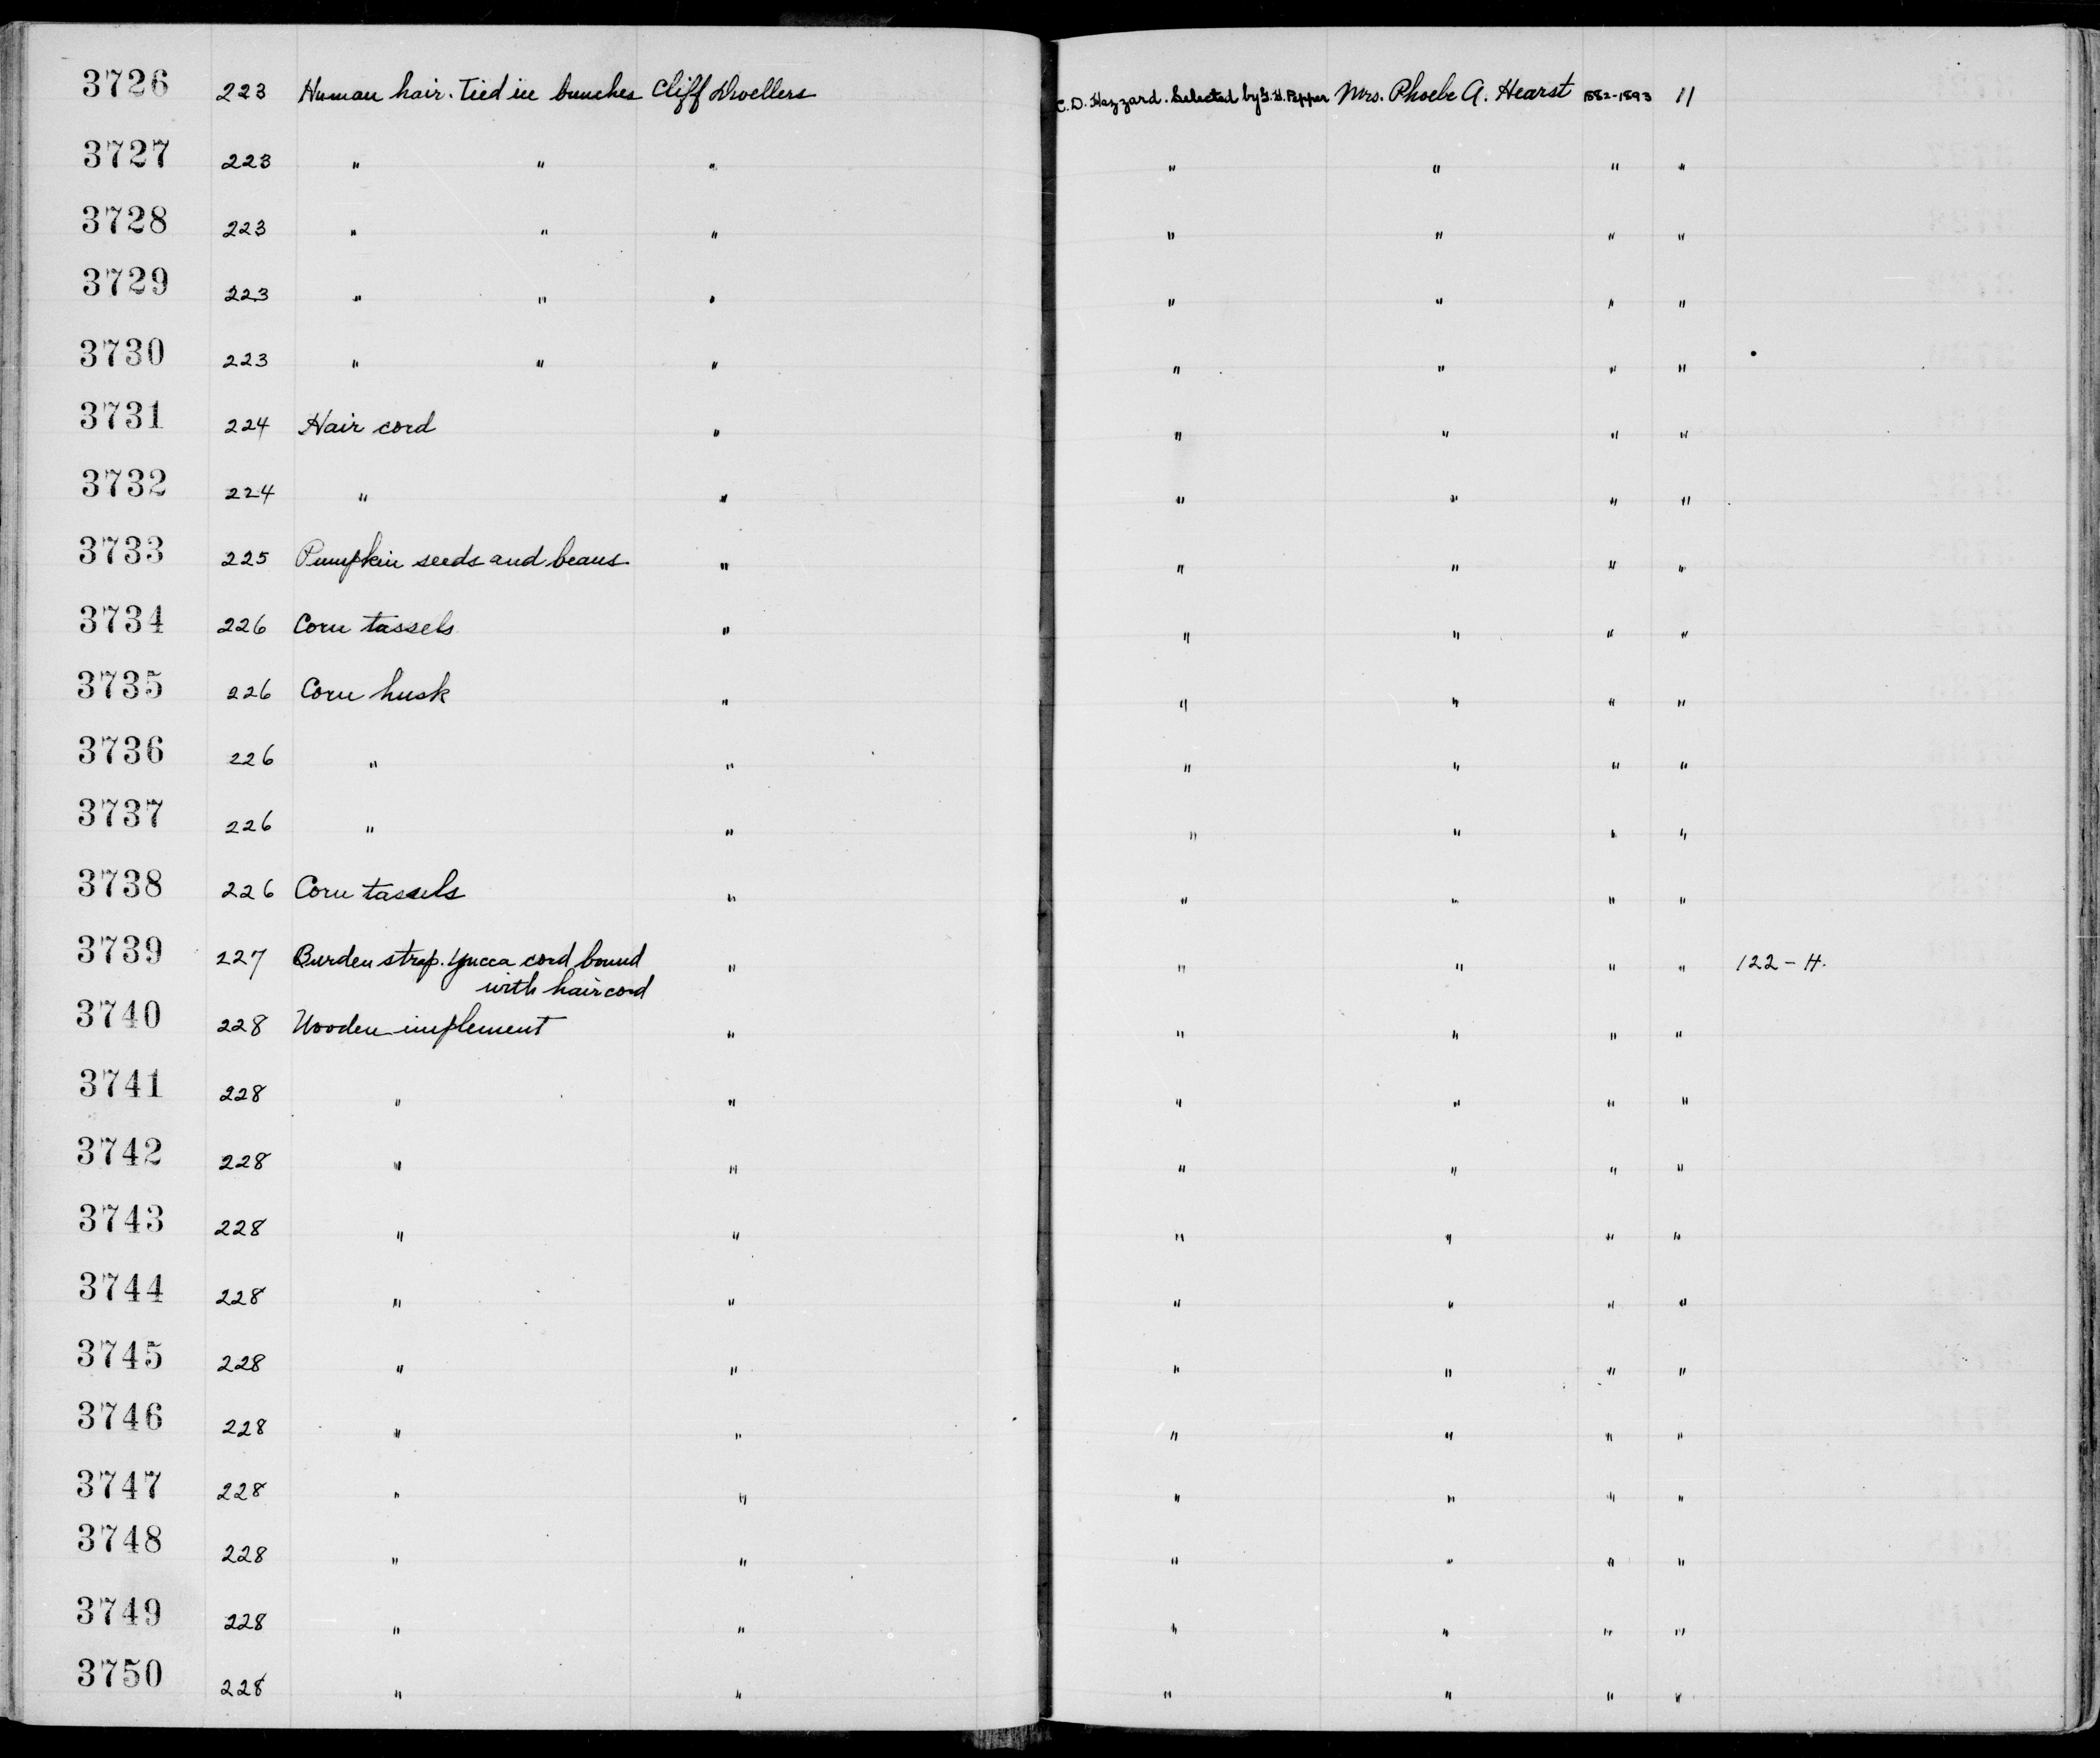 3726 223 Human hair. Tied in bunches Cliff Dwellers C. D. Hazzard. Selected by G. H. Pepper Mrs. Phoebe A. Hearst 1882-1893 11
3727 223 " " " " " " "
3728 223 " " " " " " "
3729 223 " " " " " " "
3730 223 " " " " " " "
3731 224 Hair cord " " " " "
3732 224 " " " " " "
3733 225 Pumpkin seeds and beans " " " " "
3734 226 Corn tassels " " " " "
3735 226 Corn husk " " " " "
3736 226 " " " " " "
3737 226 " " " " " "
3738 226 Corn tassels " " " " "
3739 227 Burden strap. Yucca cord bound " " " " " 122-H.
with hair cord
3740 228 Wooden implement " " " " "
3741 228 " " " " " "
3742 228 " " " " " "
3743 228 " " " " " "
3744 228 " " " " " "
3745 228 " " " " " "
3746 228 " " " " " "
3747 228 " " " " " "
3748 228 " " " " " "
3749 228 " " " " " "
3750 228 " " " " " "